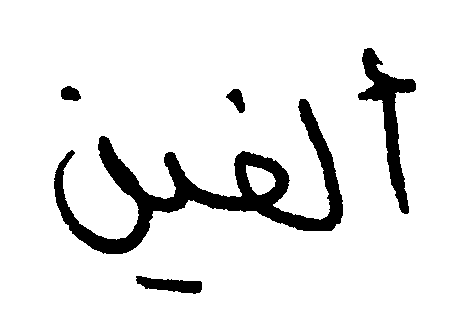 ألفين